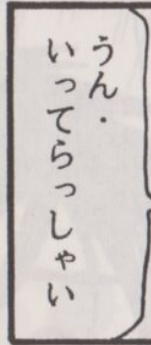 うん・
いってらっしゃい